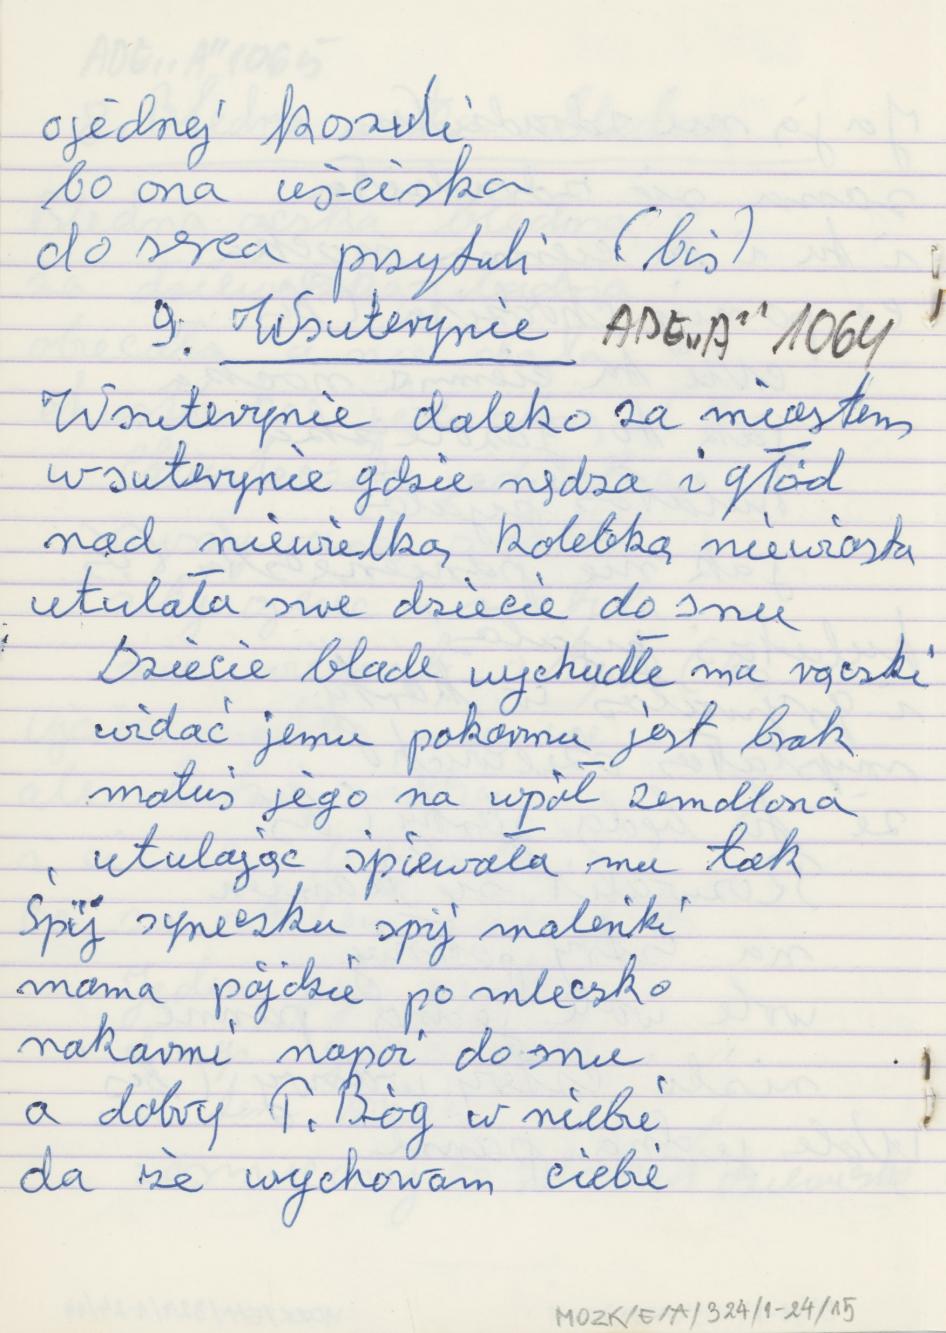 ojednej koszuli
bo ona uściska
do serca przytuli (bis)
9. Wsuterynie ADE„A” 1064
Wsuterynie daleko za miastem
wsuterynie gdzie nędza i głód
nad niewielką kolebką niewiasta
utulała swe dziecie do snu
Dziecie blade wychudłe ma rączki
widać jemu pokarmu jest brak
matuś jego na wpół zemdlona
utulając śpiewała mu tak
Śpij syneczku spij maleńki
mama pójdzie po mleczko
nakarmi napoi do snu
a dobry P. Bóg w niebie
da że wychowam ciebie
MOZK/E/A/324/1-24/15